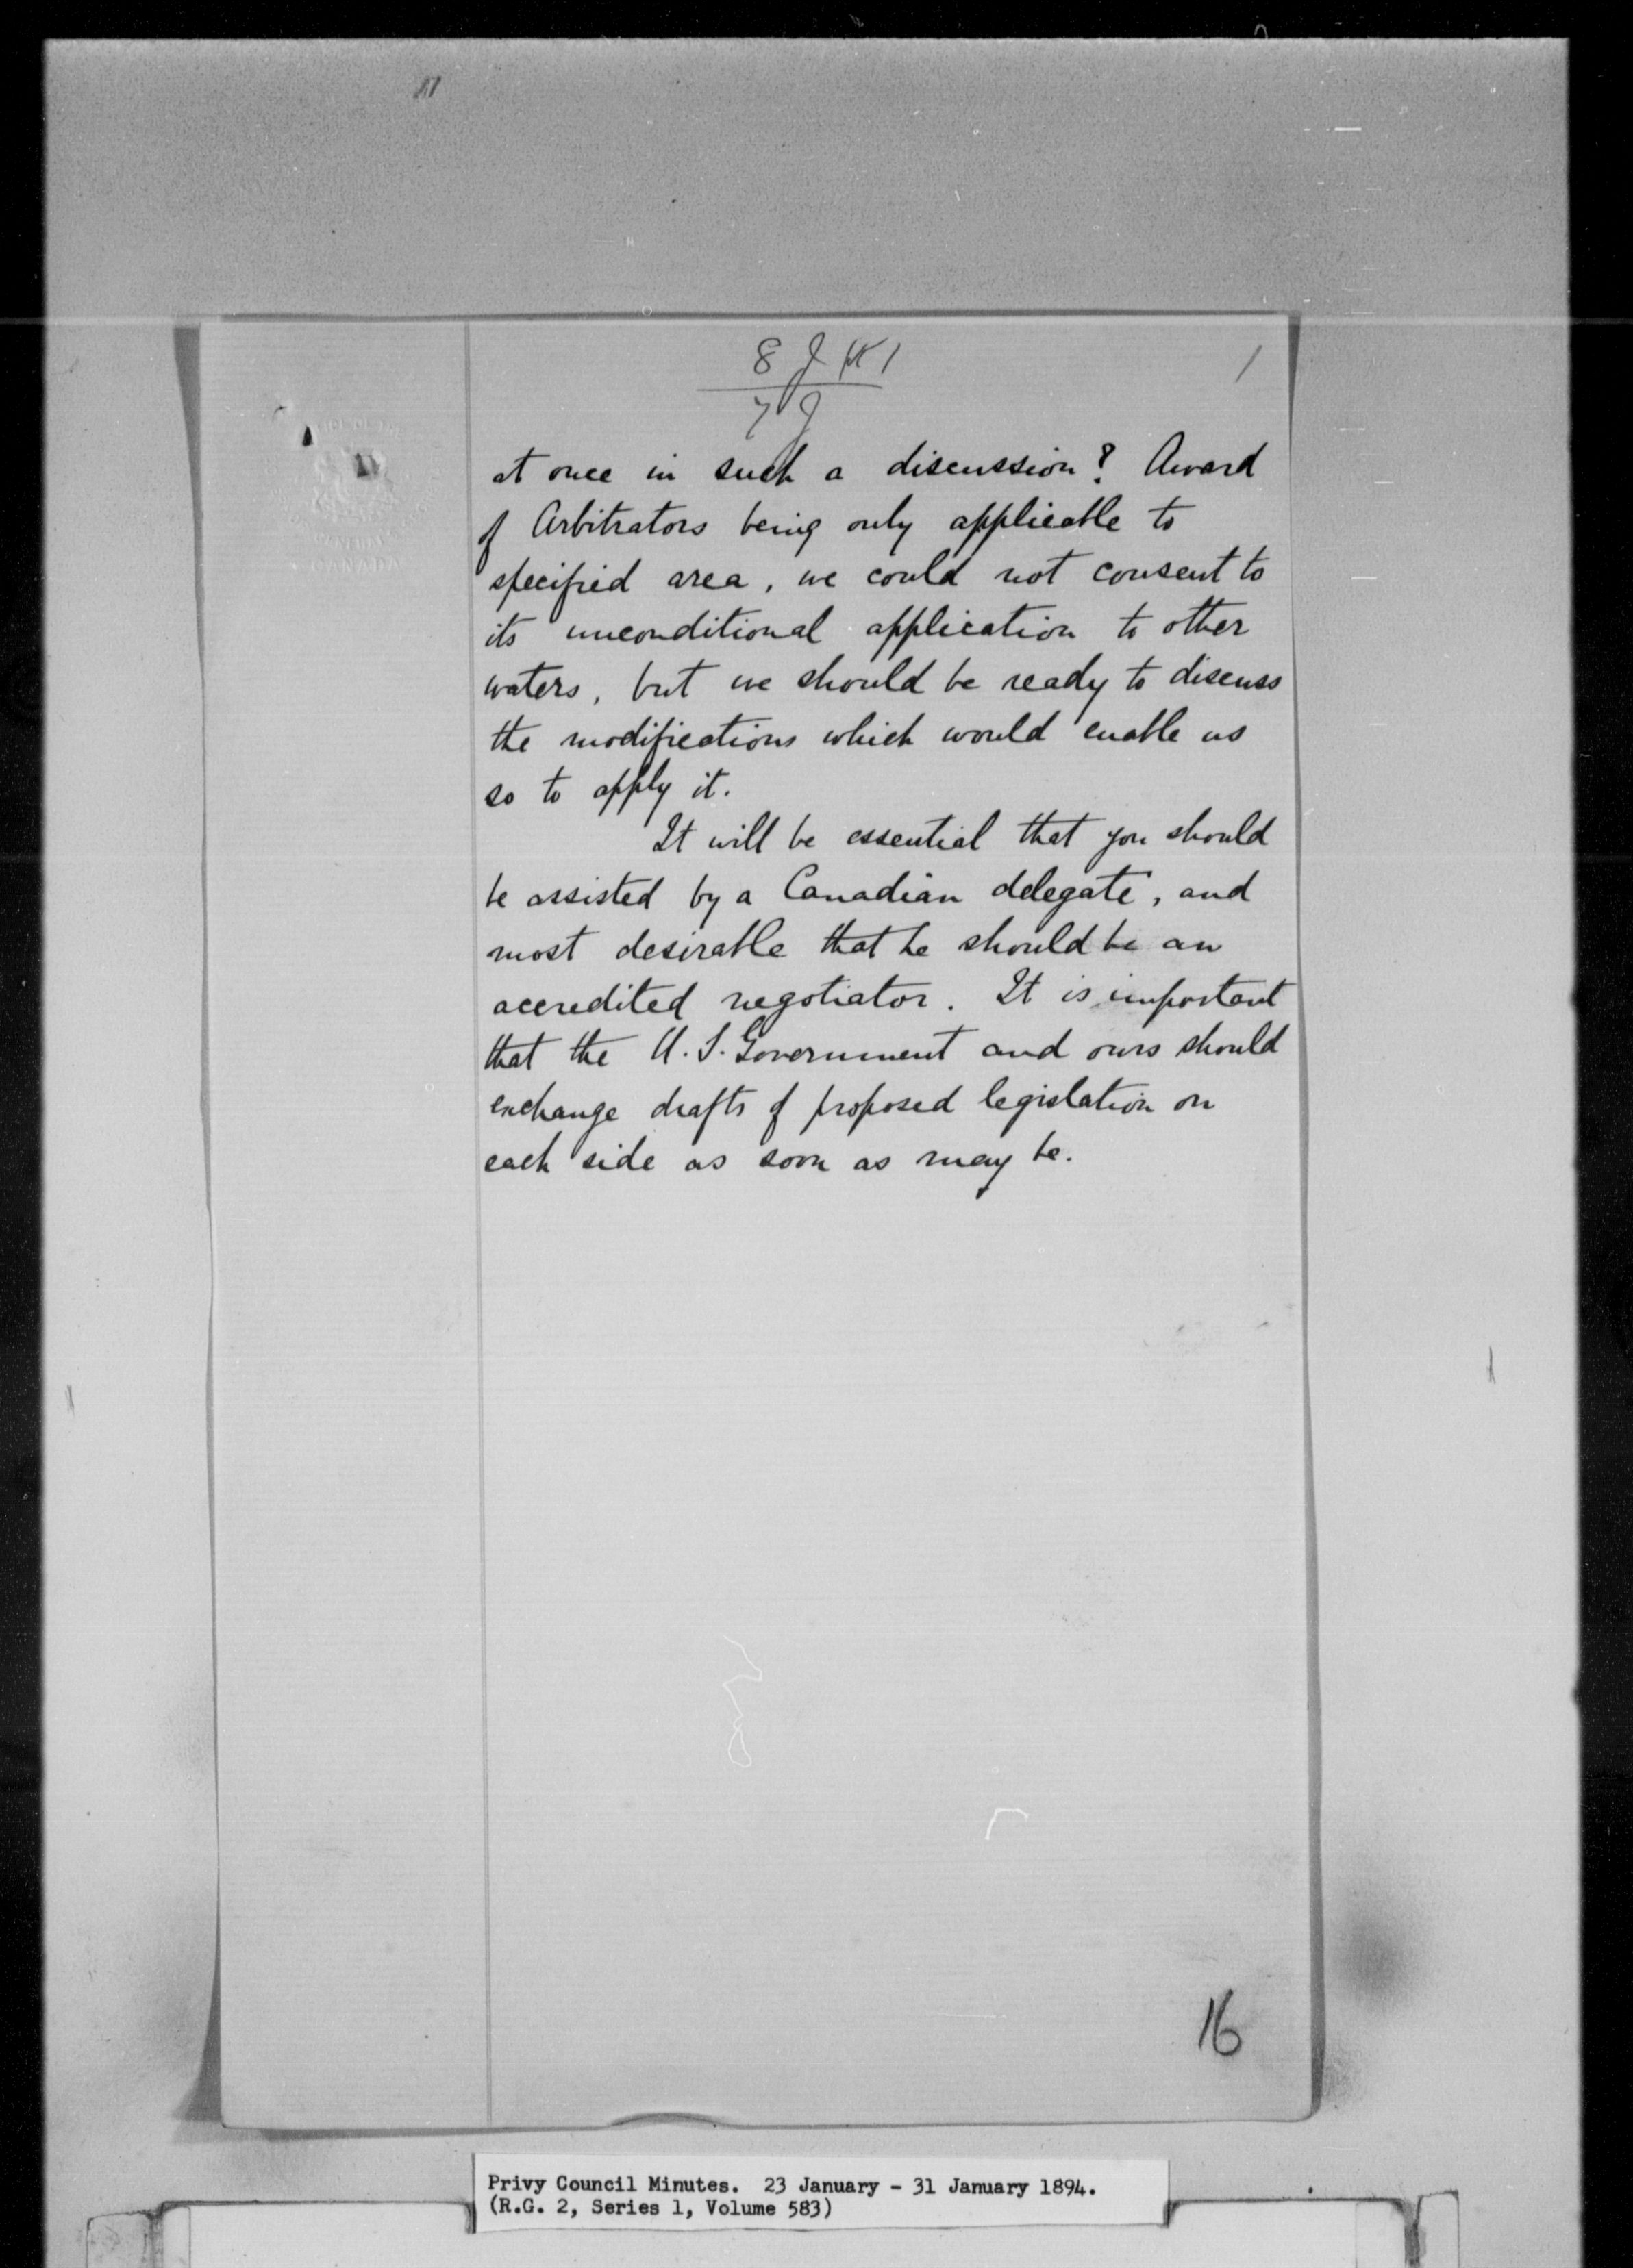 at once in such a discussion? Award
of Arbitrators being only applicable to
specified area, we could not consent to
its unconditional application to other
waters, but we should be ready to discuss
the modifications which would enable us
so to apply it.
It will be essential that you should
be assisted by a Canadian delegate, and
most desirable that he should be an
accredited negotiator. It is important
that the U.S. Government and ours should
exchange drafts of proposed legislation on
each side as soon as may be.
16
Privy Council Minutes. 23 January - 31 January 1894.
(R.G. 2, Series 1, Volume 583)